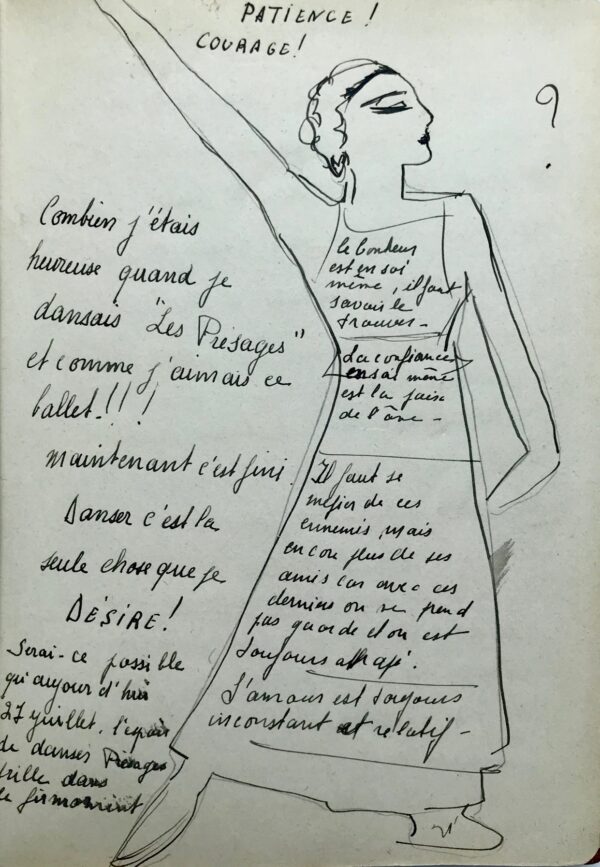 PATIENCE !
COURAGE !
?
Combien j'étais
heureuse quand je
dansais "Les Présages"
et comme j'aimais ce
ballet_!!!
maintenant c'est fini.
Danser c'est la
seule chose que je
DÉSIRE !
Serai-ce possible
qu'aujour d'hui
27 juillet, l'espoir
de danser Présages
brille dans
le firmament
le bonheur
est en soi
même, il faut
savoir le
trouver_
La confiance
en soi même
est la
de l'âme_
Il faut se
méfier de ces
ennemis, mais
encore plus de ses
amis car avec ces
derniers on ne prend
pas garde et on est
toujours attrapé.
L'amour est toujours
inconstant et relatif_